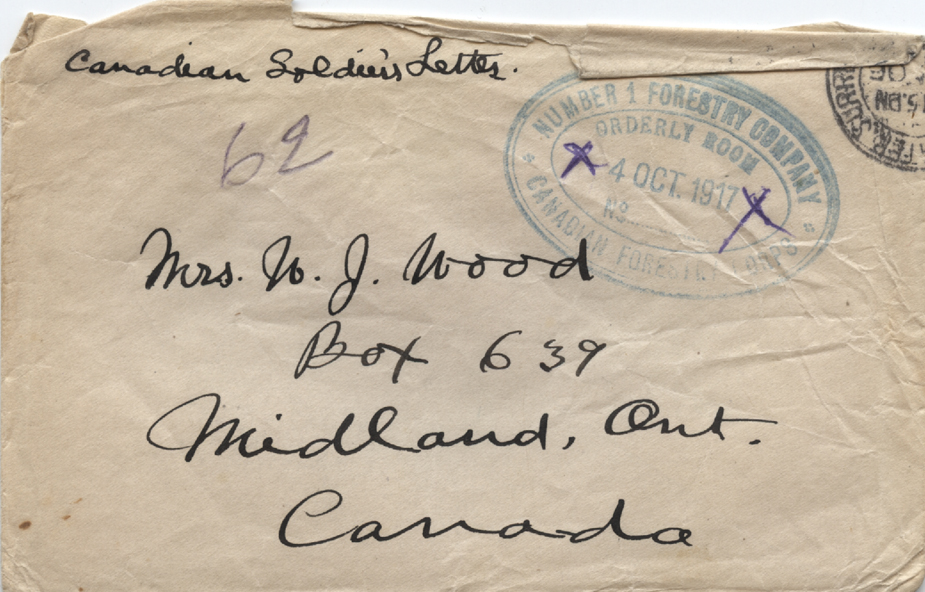 Canadian Soldier's Letter.
NUMBER 1 FORESTRY COMPANY
ORDERLY ROOM
4 OCT. 1917
No
CANADIAN FORESTRY CORPS
62
Mrs. W. J. Wood
Box 639
Midland, Ont.
Canada